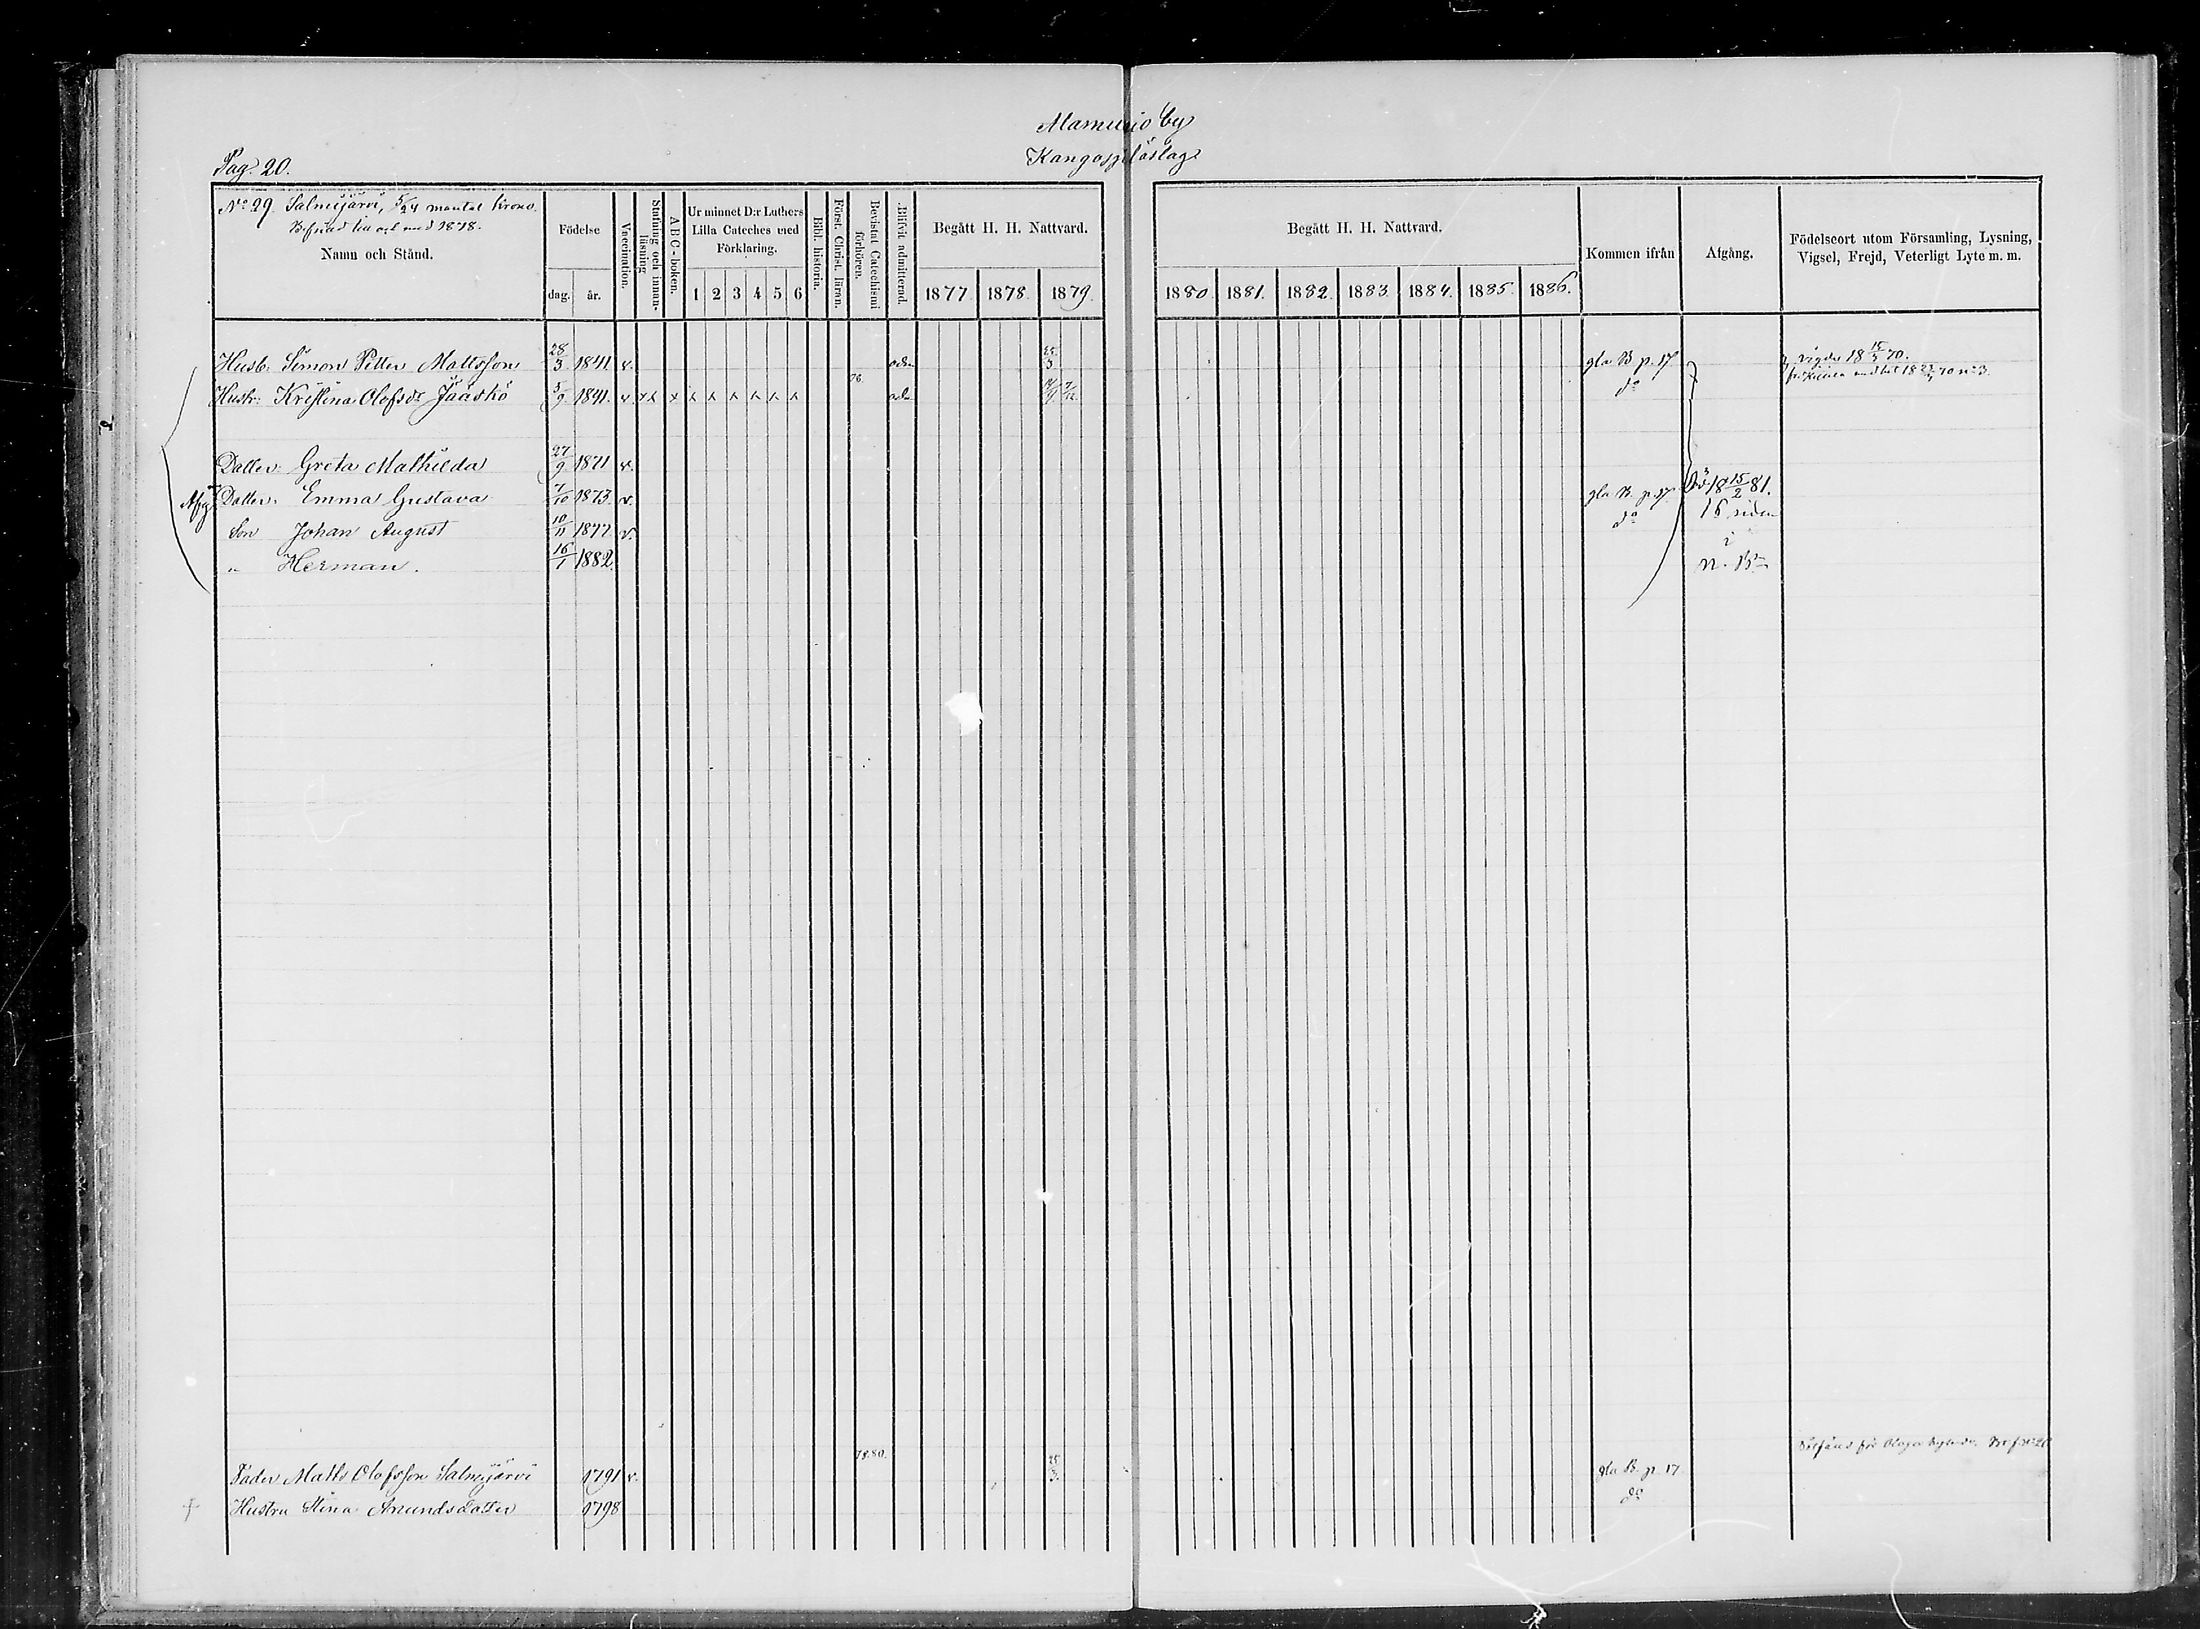 by
Pag. 20.
No 29. Salmijärvi, 5/24 mantal krono.
till och med 1878.
Namn och Stånd.
Födelse
dag. år.
Vaccination.
Stafning och innan-läsning
A B C - boken.
Ur minnet D:r Luthers Lilla Cateches med Förklaring.
1 2 3 4 5 6
Bibl. historia.
Först. Christ. läran.
Bevistat Catechismi förhören.
Blifvit admitterad.
Begått H. H. Nattvard.
1877. 1878. 1879.
Begått H. H. Nattvard.
1880. 1881. 1882. 1883. 1884. 1885. 1886.
Kommen ifrån
Afgång.
Födelseort utom Församling, Lysning, Vigsel, Frejd, Veterligt Lyte m. m.
Husb. Simon Petter Mattsson 28/3 1841 v. adm 25/3 gla B p. 17 vigde 18 15/3 70.
Hustr. Kristina Olofsdr Jääskö 5/9 1841. v. 78. adm do
Dotter Greta Mathilda 27/9 1871 v.
Dotter Emma Gustava 7/10 1873. v. gla B. p. 17 Dö 18 15/2 81.
Son Johan August 10/11 1877 v. do 16 sidan
i
" Herman. 16/1 1882. n. B.
78.80.
Fader Matts Olofsson Salmijärvi 1791 v. 25/3. gla B. p. 17
† Hustru Stina Anundsdotter 1798 do